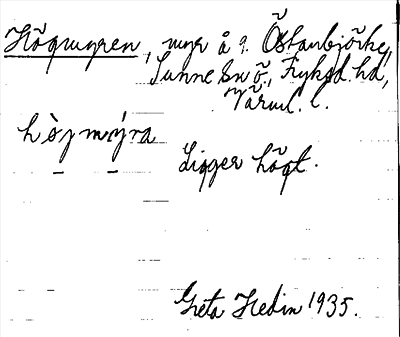 Högmyren, myr å g. Östanbjörke,
Sunne sn ö, Fryksd. hd,
Värml. l.
hö̀jmýra
Ligger högt.
Greta Hedin 1935.